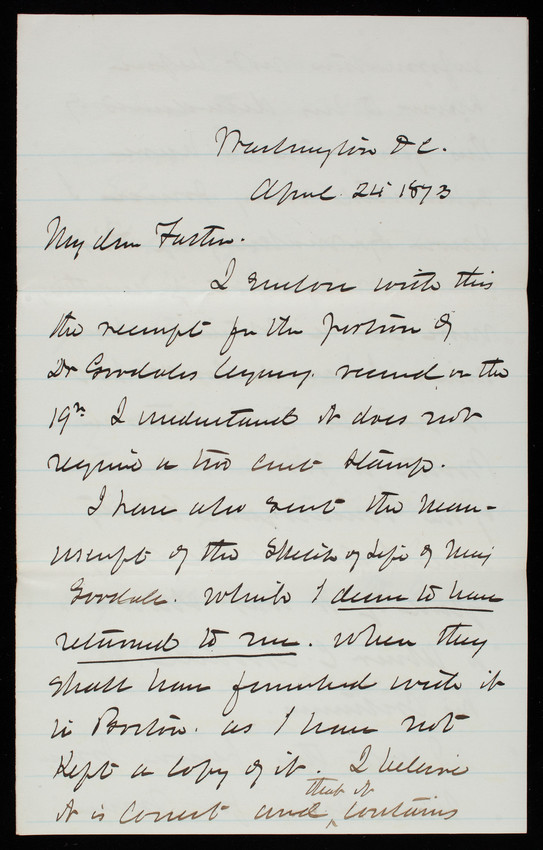 Washington D C.
April 24 1873
My dear Father.
I enclose with this
the receipt for the portion of
Dr Goodales legacy. received on the
19th I understand it does not
require a two cent stamp.
I have also sent the man-
uscript of the Sketch of Life of
Goodale. which I desire to have
returned to me. when they
shall have finished with it
in Boston. as I have not
Kept a copy of it. I believe
that it
it is correct and contains